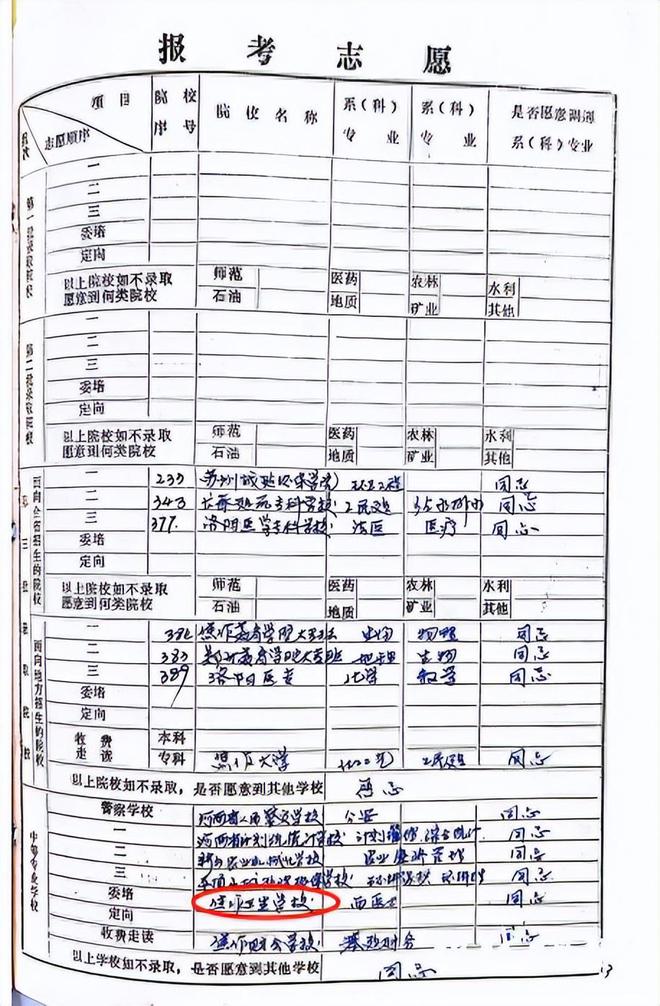 报考志愿
项目 院校序号 院校名称 系（科）专业 系（科）专业 是否愿意调剂系（科）专业
批次 志愿顺序
第一批录取院校
一
二
三
委培
定向
以上院校如不录取愿意到何类院校 师范 医药 农林 水利
石油 地质 矿业 其他
第二批录取院校
一
二
三
委培
定向
以上院校如不录取愿意到何类院校 师范 医药 农林 水利
石油 地质 矿业 其他
第三批录取院校
面向全省招生的院校
一 233 苏州城建环保学院 环境工程
二 343 专科学校 工民建
三 377. 洛阳医学专科学校 法医 医疗
委培
定向
以上院校如不录取愿意到何类院校 师范 医药 农林 水利
石油 地质 矿业 其他
面向地方招生的院校
一 382 焦作教育学院大专班 生物 物理 同意
二 383 郑州教育学院大专班 地理 生物 同意
三 389 洛阳医专 化学 数学 同意
委培
定向
收费走读 本科
专科 焦作大学 工民建 同意
以上院校如不录取，是否愿意到其他学校 同意
中等专业学校
警察学校 河南省人民警察学校 公安 同意
一 河南省计划统计学校 同意
二 农业机械化学校 农业经济管理 同意
三 学校 同意
委培 焦作卫生学校 西医士 同意
定向
收费走读 焦作财会学校 财务 同意
以上学校如不录取，是否愿意到其他学校 同意
13